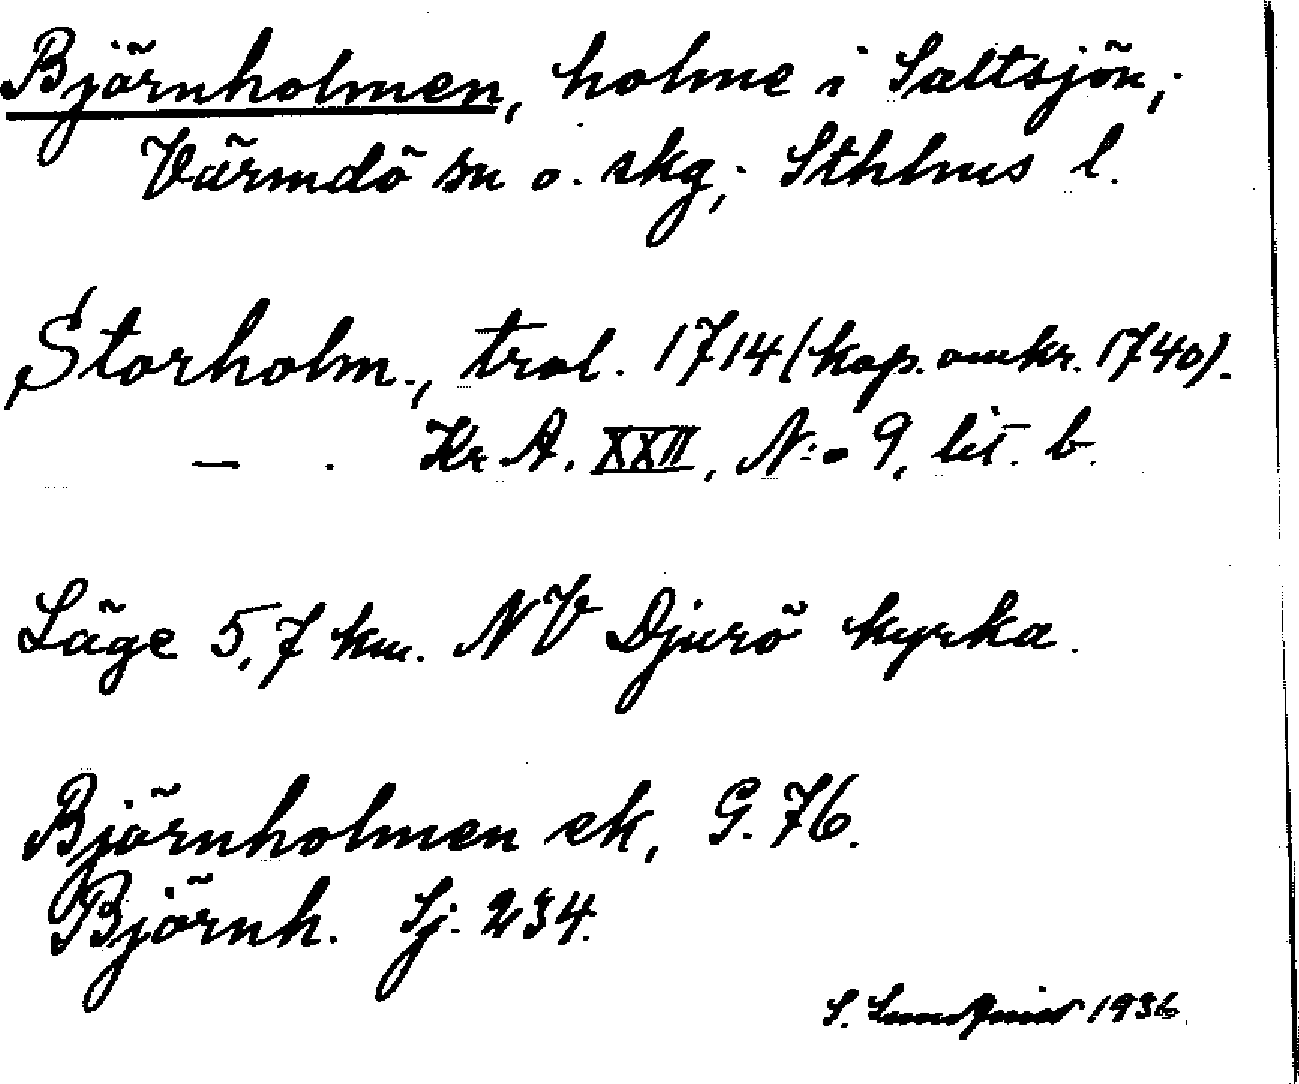 Björnholmen, holme i Saltsjön,
Värmdö sn o. skg, Sthlms l.
Storholm., trol. 1714 (kop. omkr. 1740).
— . Kr. A. XXII, N:o 9, lit. b.
Läge 5,7 km. NV Djurö kyrka.
Björnholmen ek, G. 76.
Björnh. Sj. 234.
S. 1936